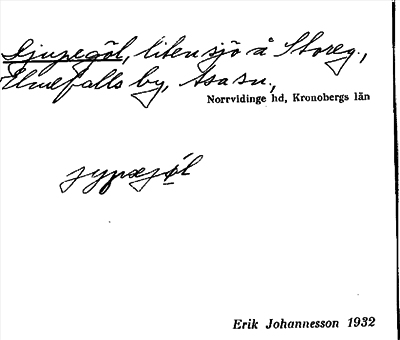 Djupegöl, liten sjö å Storeg.,
Elmefalls by, Asa sn.,
Norrvidinge hd, Kronobergs län
jypæjøl
Erik Johannesson 1932